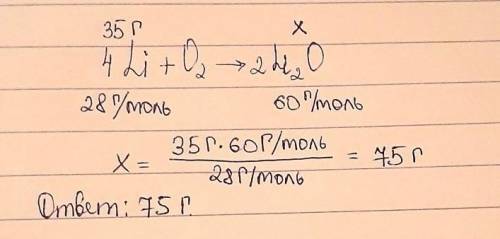 35 г x
4 Li + O₂ → 2 Li₂O
28 г/моль 60 г/моль
x = 35 г · 60 г/моль / 28 г/моль = 75 г
Ответ: 75 г.